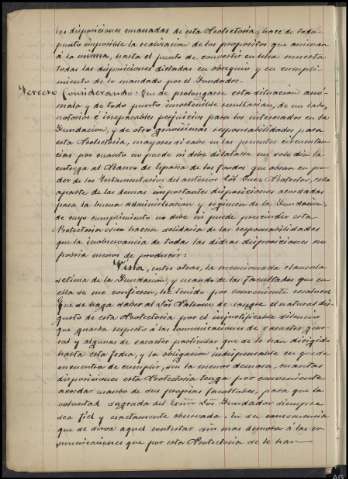 las disposiciones emanadas de esta Protectoria, hace de todo
punto imposible la realizacion de los propositos que animan
á la misma, hasta el punto de convertir en letra muerta
todas las disposiciones dictadas en obsequio y en cumpli-
miento de lo mandado por el Fundador.
Tercero Considerando: Que de prolongarse esta situacion anó-
mala y de todo punto insostenible resultarian, de un lado,
notorios é irreparables perjuicios para los interesados en la
Fundacion, y de otro gravisimas responsabilidades para
esta Protectoria, mayores si cabe en las presentes circunstan-
cias por cuanto no puede ni debe dilatarse un solo dia la
entrega al Banco de España de los fondos que obran en po-
der de los Testamentarios del anterior
aparte de las demas importantes disposiciones acordadas
para la buena administracion y regimen de la Fundacion,
de cuyo cumplimiento no debe ni puede prescindir esta
Protectoria sin hacerse solidaria de las responsabilidades
que la inobservancia de todas las dichas disposiciones no
podria menos de producir:
Vista, entre otras, la mencionada clausula
setima de la Fundacion, y usando de las facultades que en
ella se me confieren, he tenido por conveniente resolver
Que se haga saber al Sor. Patrono de sangre el natural dis-
gusto de esta Protectoria por el injustificable silencio
que guarda respecto á las comunicaciones de caracter
y algunas de caracter particular que se le han dirigido
hasta esta fecha, y la obligacion indispensable en que se
encuentra de cumplir, sin la menor demora, cuantas
disposiciones esta Protectoria tenga por conveniente
acordar dentro de sus propias facultades, para que la
voluntad sagrada del Exmo. Sor. Fundador siempre
sea fiel y exactamente observada. En su consecuencia
que se sirva aquel contestar sin mas demora á las co-
municaciones que por esta Protectoria se le han